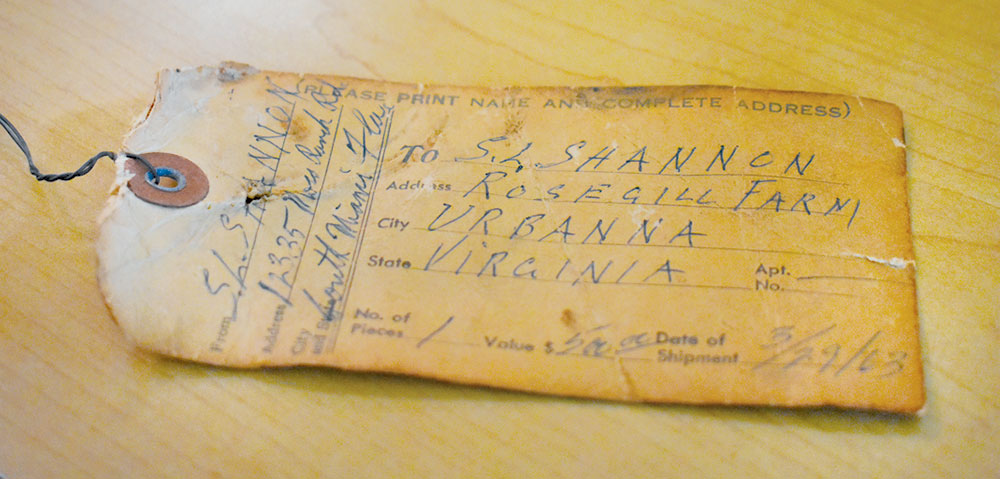 (PLEASE PRINT NAME AND COMPLETE ADDRESS)
TO S.L. SHANNON
Address ROSEGILL FARM
City URBANNA
State VIRGINIA Apt. No.
No. of Pieces 1 Value $ Date of Shipment 3/29/63
From S.L. SHANNON
Address 12335 Rd
City and South Miami Fla